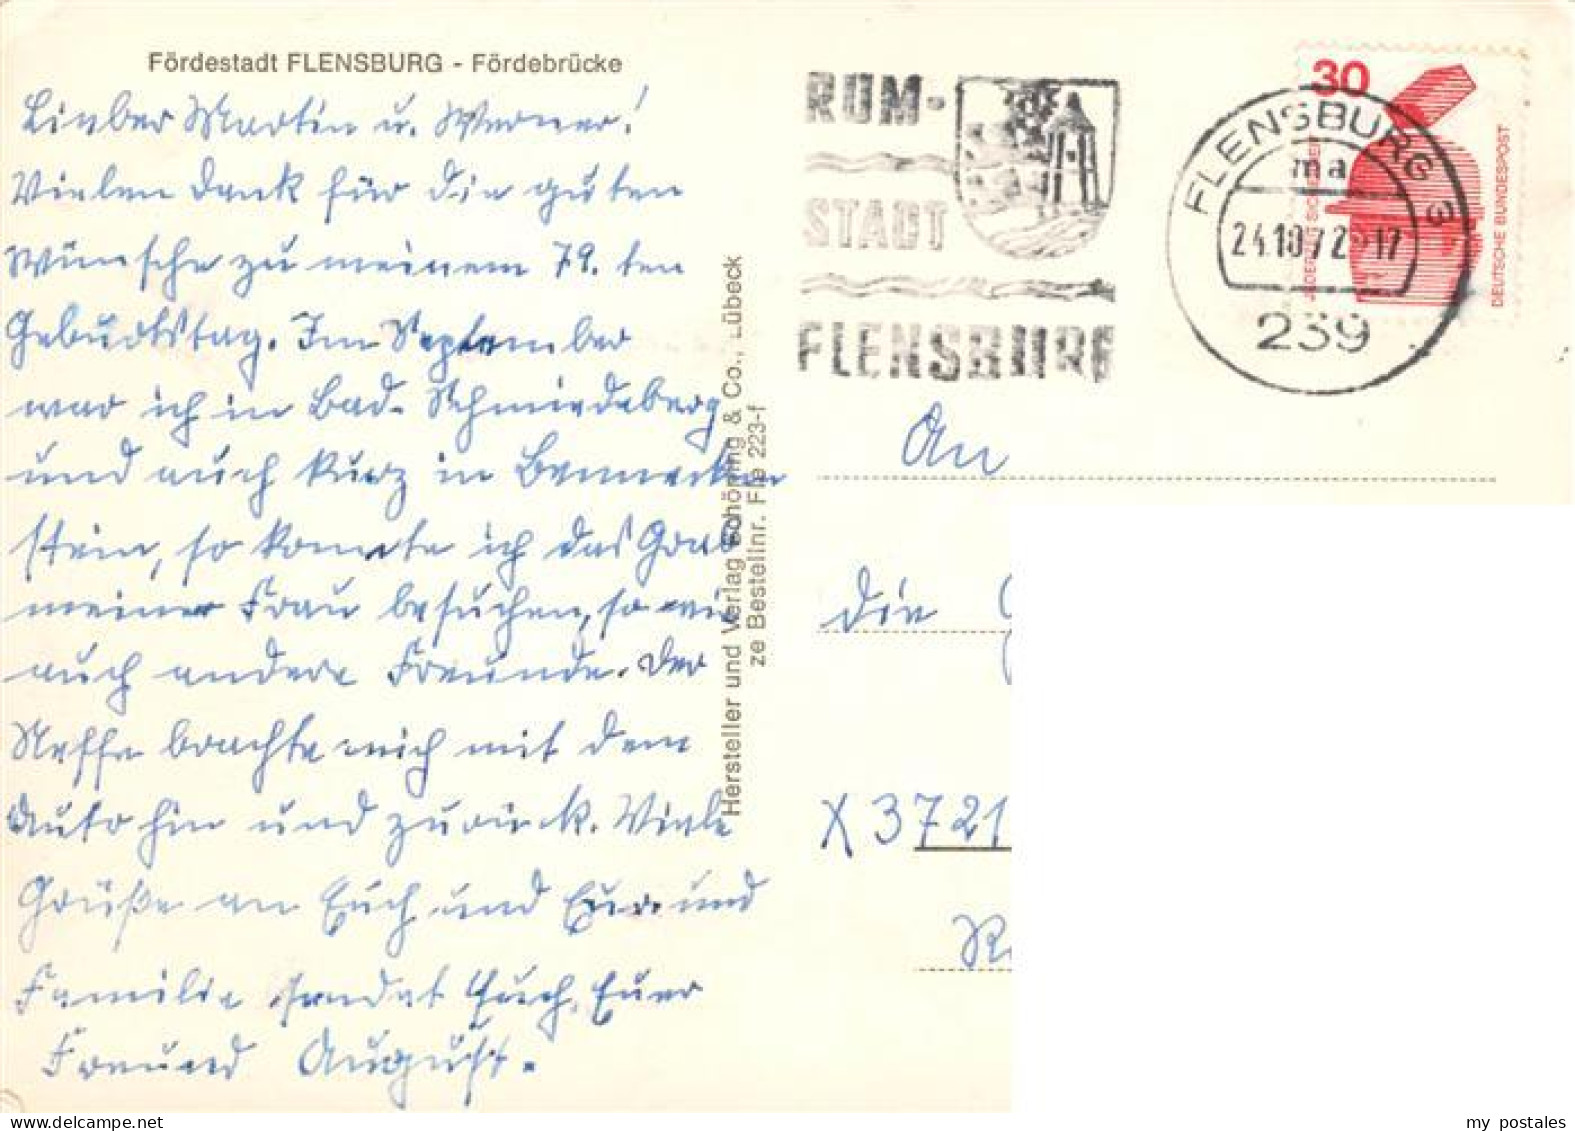 Fördestadt FLENSBURG - Fördebrücke
Lieber Martin u. Werner!
Vielen Dank für die guten
Wünsche zu meinem 79. ten
Geburtstag. Im September
war ich in Bad. Schmiedeberg
und auch kurz in Benneken
stein, so konnte ich das Grab
meiner Frau besuchen, so wie
auch andere Freunde. Der
Neffe brachte mich mit dem
Auto hin und zurück. Viele
Grüße an Euch und Eure und
Familie sendet Euch, Euer
Freund August.
Hersteller und Verlag Schöning & Co., Lübeck
ze Bestellnr. Fle 223-f
RUM-
STADT
FLENSBURG
FLENSBURG 3
ma
24.10.72-17
239
30
JEDERZEIT SICHERHEIT
DEUTSCHE BUNDESPOST
An
die
X 3721